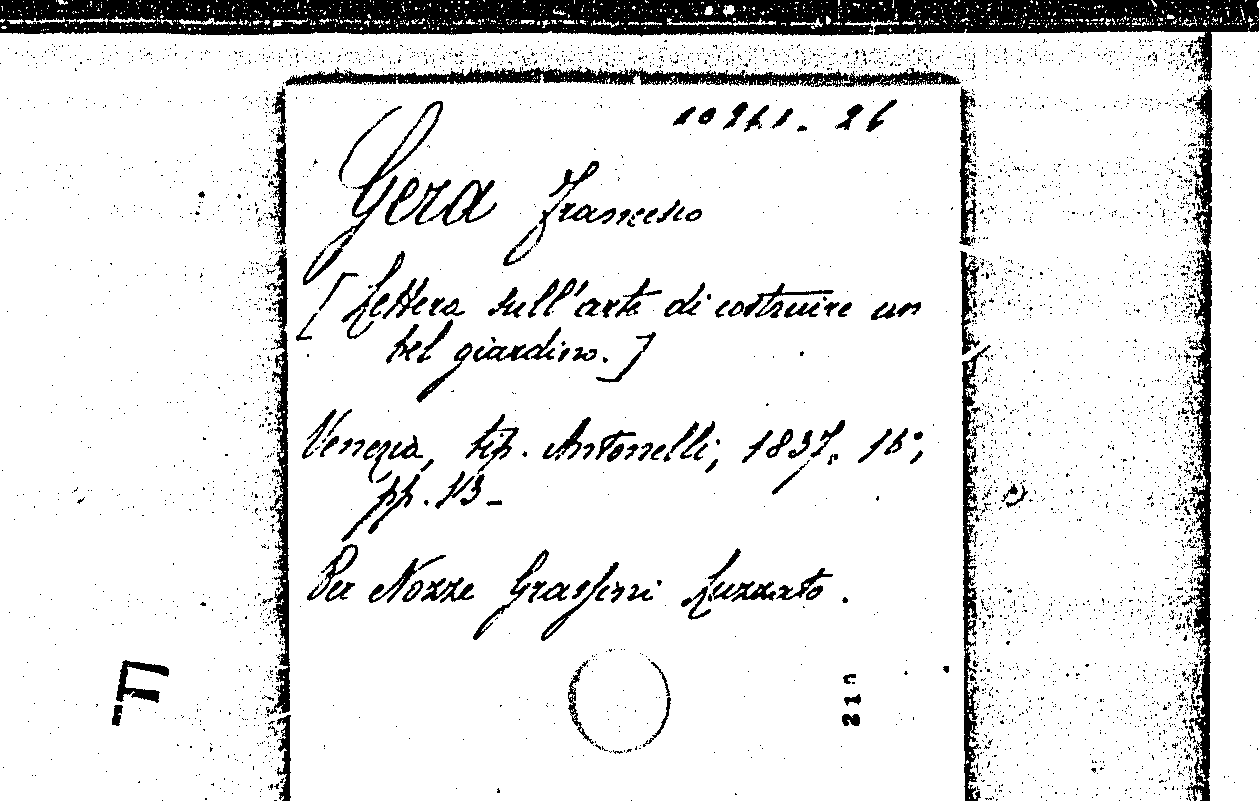 10241. 26
Gera Francesco
[Lettera sull'arte di costruire un
bel giardino.]
Venezia, tip. Antonelli, 1837. 16°,
pp. 43 -
Per Nozze Grassini Luzzato.